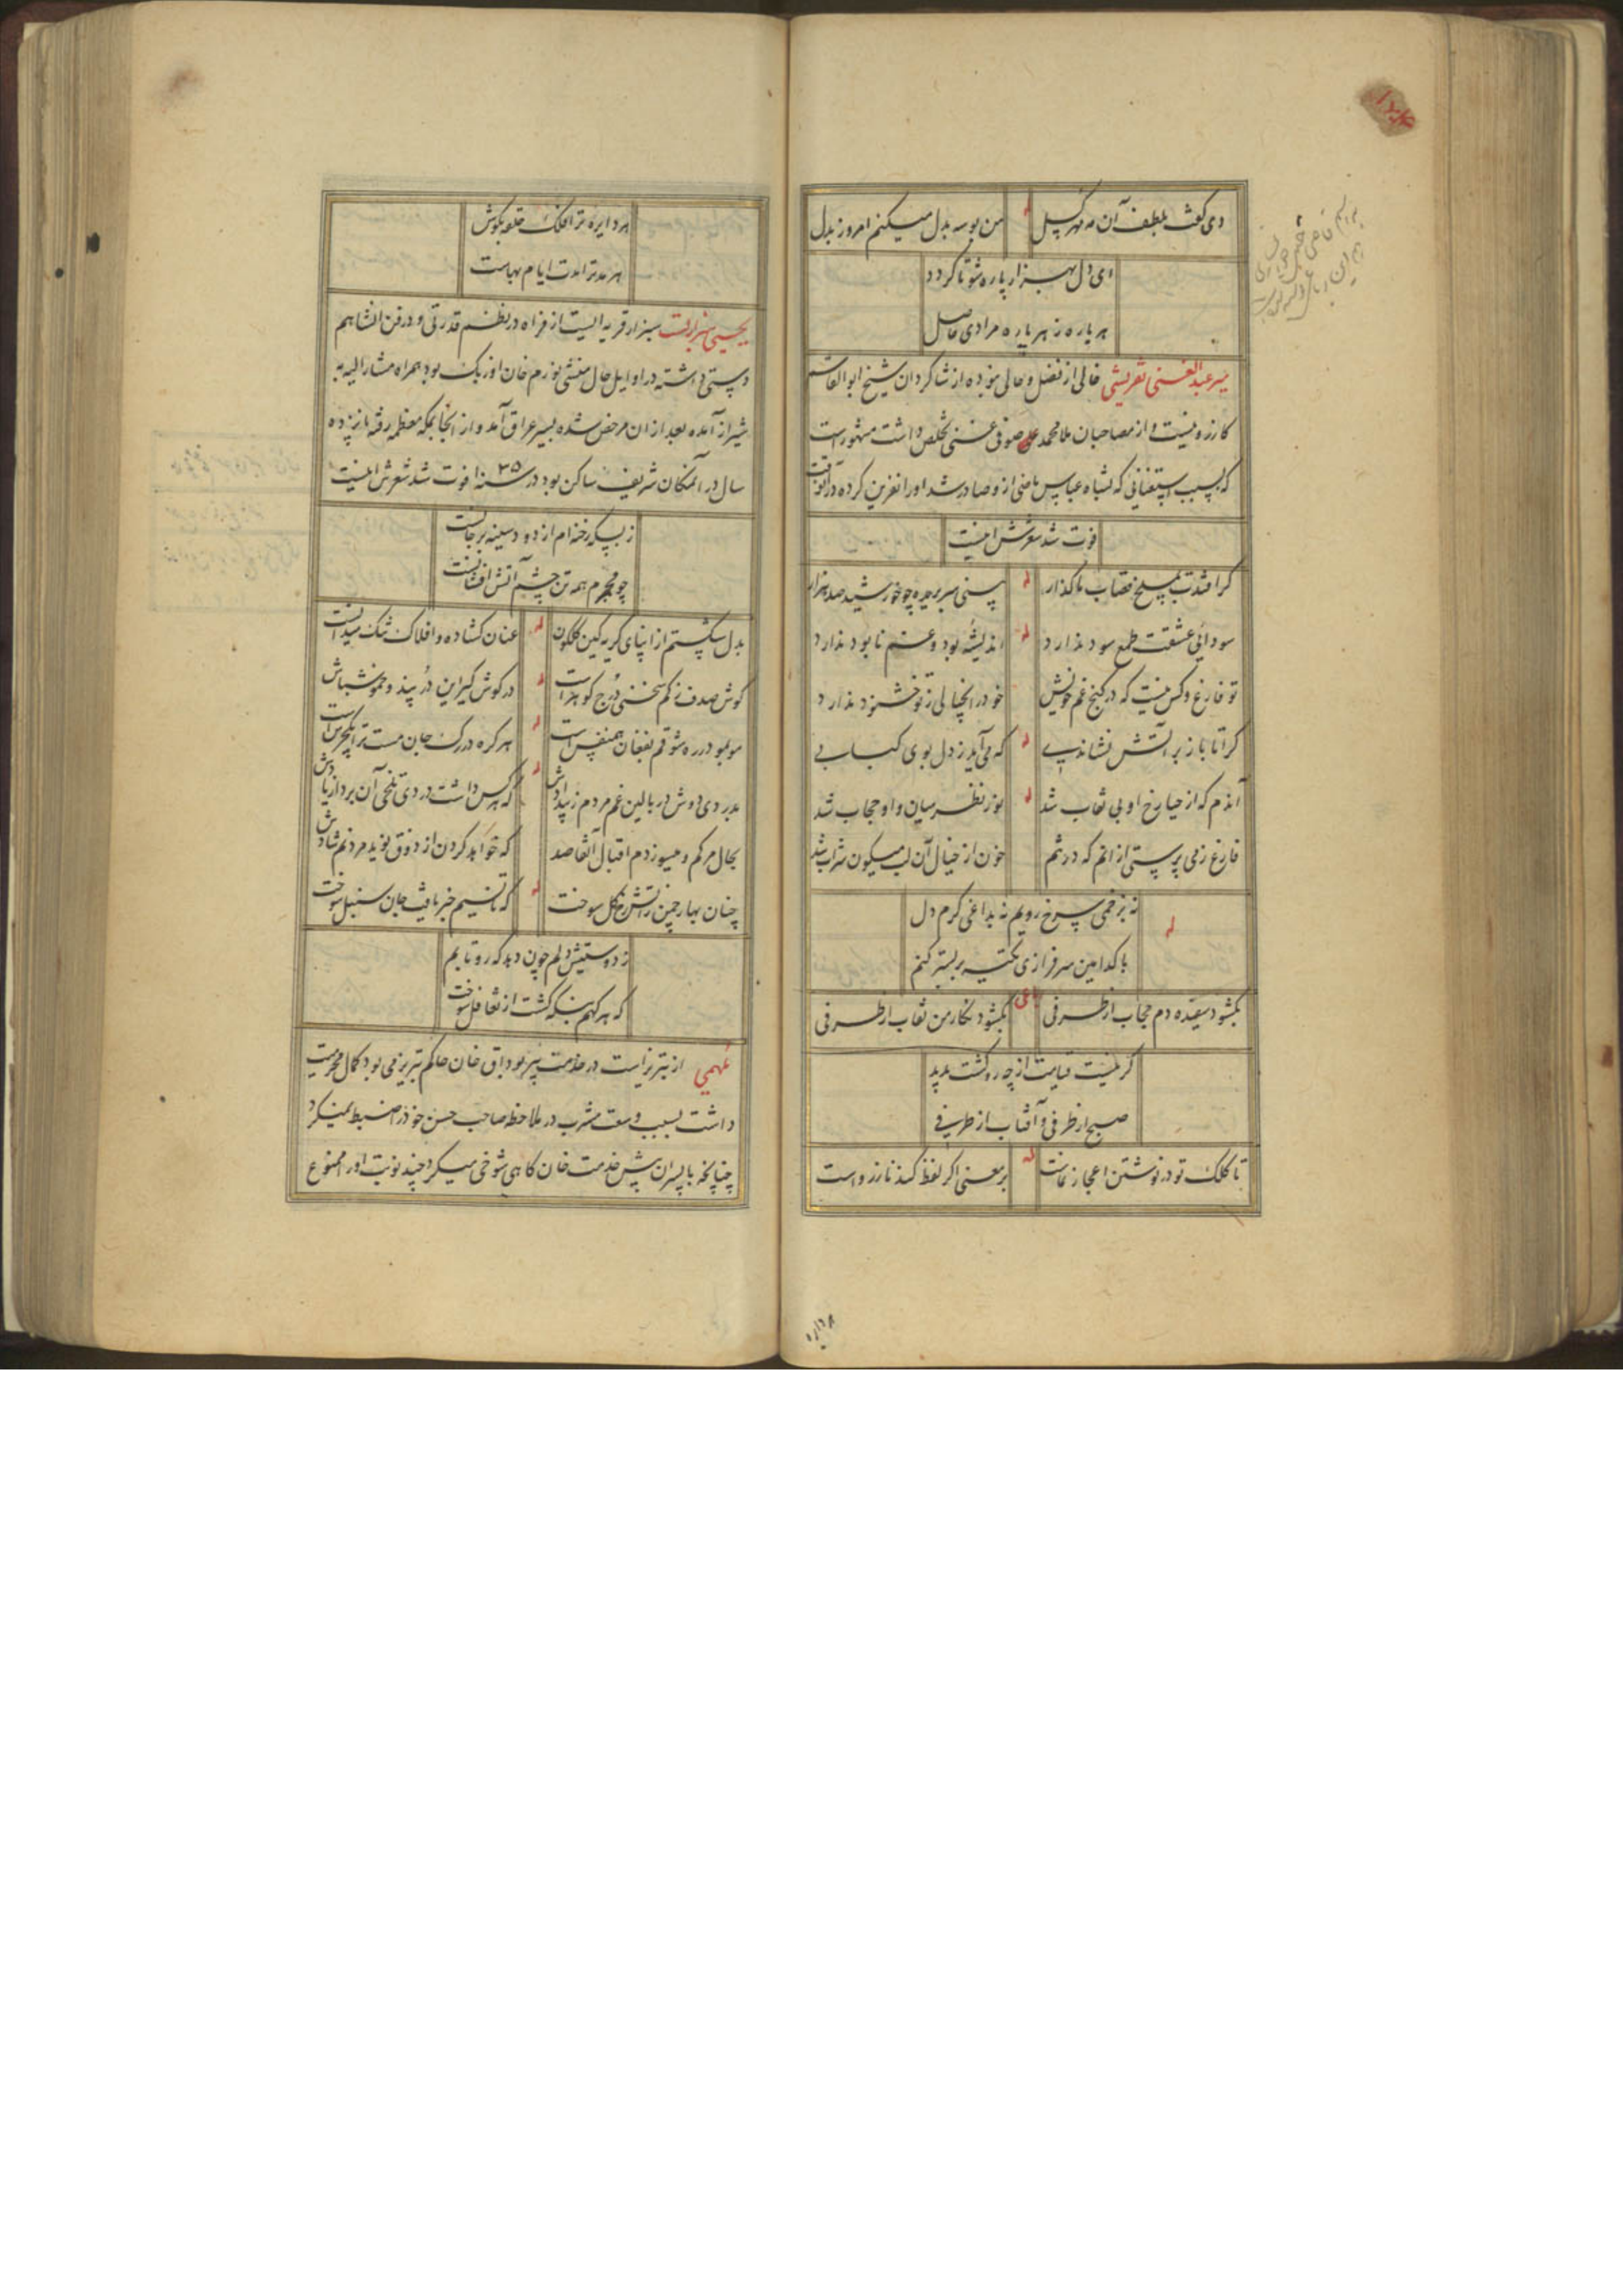 دی گفت بلطف آن مه مهر گسل من بوسه بدل میکنم امروز بدل
ای دل بهزار پاره شو تا گردد
هر پاره ز هر پاره مرادی حاصل
میر عبدالغنی تفریشی خالی از فضل و حالی نبوده از شاگردان شیخ ابوالقاسم
کازرونیست و از مصاحبان ملا محمد صوفی غنی تخلص داشت مشهورست
که بسبب استغنائی که بشاه عباس ماضی ازو صادر شد او را نفرین کرده در آنوقت
فوت شد شعرش اینست
گر افتدت بمسلخ قصاب ما گذار له بینی سر بریده چو خورشید صد هزار
سودائی عشقت طمع سود ندارد له اندیشه بود و غم نابود ندارد
تو فارغ و کس نیست که در کنج غم خویش خود را بخیالی ز تو خشنود ندارد
کرا تا باز بر آتش نشاندی له که می آید ز دل بوی کبابی
آندم که از حیا رخ او بی نقاب شد له نور نظر میان و او حجاب شد
فارغ ز می پرستی از انم که در تنم خون از خیال آن لب میگون شراب شد
نه بزخمی سرخ رویم نه بداغی گرم دل له
با کدامین سرفرازی تکیه بر بستر کنم
بگشود سفیده دم حجاب از طرفی بگشود نگار من نقاب از طرفی
گر نیست قیامت از چه رو گشت پدید
صبح از طرفی و آفتاب از طرفی
تا کلک تو در نوشتن اعجاز نماست له بر معنی اگر لفظ کند ناز رواست
هر دایره ترا فلک حلقه بگوش
هر مد ترا مدت ایام بهاست
یحیی سبزواریست سبزار قریه ایست از فراه در نظم قدرتی و در فن انشا هم
دستی داشته در اوایل حال منشی نورم خان اوزبک بود همراه مشار الیه به
شیراز آمده بعد از ان مرخص شده بسیر عراق آمد و از انجا بمکه معظمه رفته پانزده
سال در آنمکان شریف ساکن بود در سنه ۳۵ فوت شد شعرش اینست
ز بسکه رخنه ام از دود سینه بر جانست
چو مجمرم همه تن چشم آتش افشانست
بدل شکستم از اینای گریه کین گلگون له عنان گشاده و افلاک تنگ میدانست
گوش صدف ز کم سخنی درج گوهر است له در گوش گیر این در پند و خموش باش
مو بمو در ره شوقم بفغان همنفس است له هر گره در رگ جان مست ترا بکجرس است
بدردی دوش در بالین غم مردم ز بیدادش له که هر کس داشت دردی تلخی آن برد از یادش
بحال مرگم و میسوزدم اقبال آن قاصد که خواهد کردن از ذوق نوید مردنم شادش
چنان بهار چمن ز آتش رخ گل سوخت له که تا نسیم خبر یافت جان سنبل سوخت
ز دوستیش دلم چون دید که رو تابم
که هر کهم بنگه کشت از تغافل سوخت
ملهمی از تبریز است در خدمت پیر بوداق خان حاکم تبریز می بود کمال محرمیت
داشت بسبب وسعت مشرب در ملاحظه صاحب حسن خود را ضبط نمیکرد
چنانچه با پسران پیش خدمت خان گاهی شوخی میکرد چند نوبت او را ممنوع